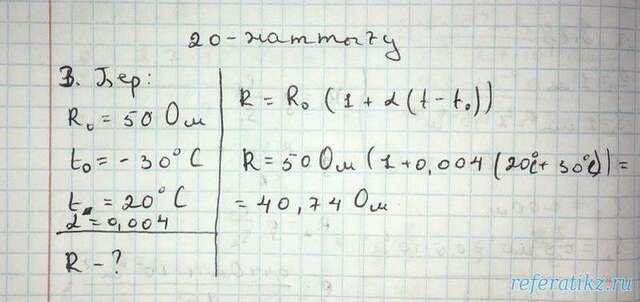 20-жаттығу
3. Бер:
R₀ = 50 Ом
t₀ = -30°C
t = 20°C
α = 0,004
R - ?
R = R₀ (1 + α (t - t₀))
R = 50 Ом (1 + 0,004 (20°C + 30°C)) =
= 40,74 Ом
referatikz.ru